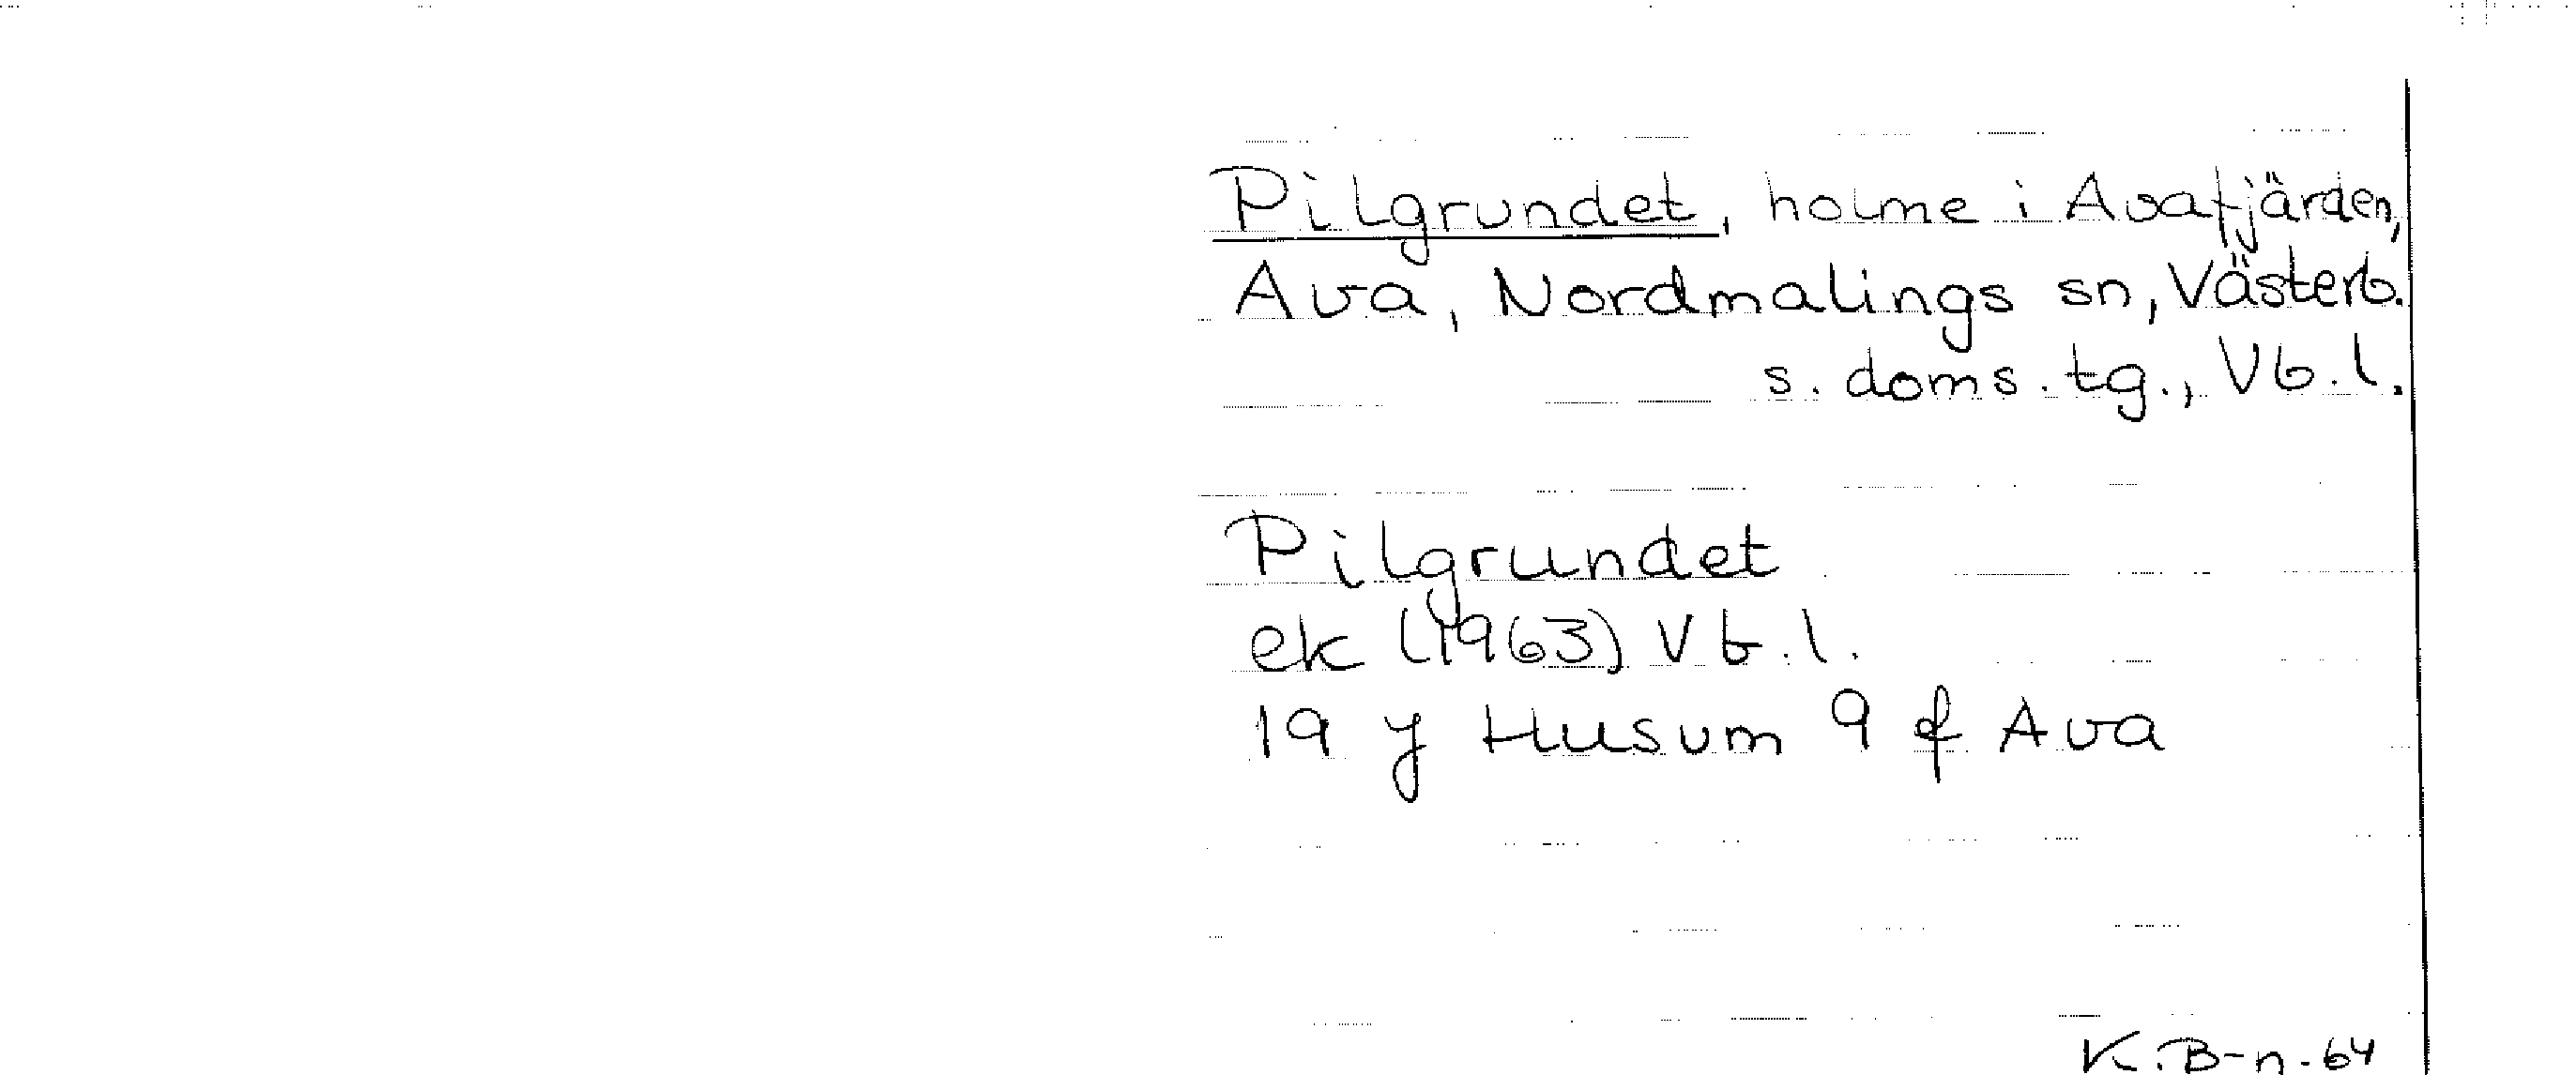 Pilgrundet, holme i Avafjärden,
Ava, Nordmalings sn, Västerb.
s. doms. tg., Vb. l.
Pilgrundet
ek (1963) Vb. l.
19 J Husum 9 f Ava
K. B-n - 64